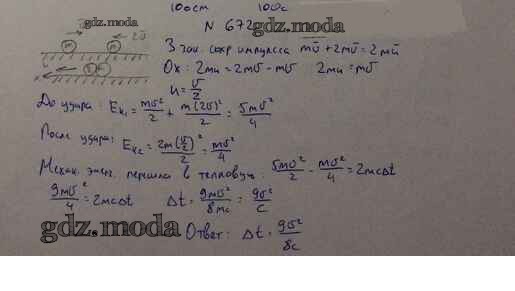 100 см 100 с
gdz.moda
N 672
gdz.moda
З зак. сохр импульса mῡ + 2mῡ = 2mū
m m ← 2ῡ
Ox: 2mu = 2mυ - mυ 2mu = mυ
u = υ/2
До удара: Eк₁ = mυ²/2 + m(2υ)²/2 = 5mυ²/4
После удара: Eк₂ = 2m(υ/2)²/2 = mυ²/4
Механ. энерг. перешла в тепловую: 5mυ²/2 - mυ²/4 = 2mcΔt
9mυ²/4 = 2mcΔt Δt = 9mυ²/8mc = 9υ²/c
gdz.moda
Ответ: Δt = 9υ²/8c